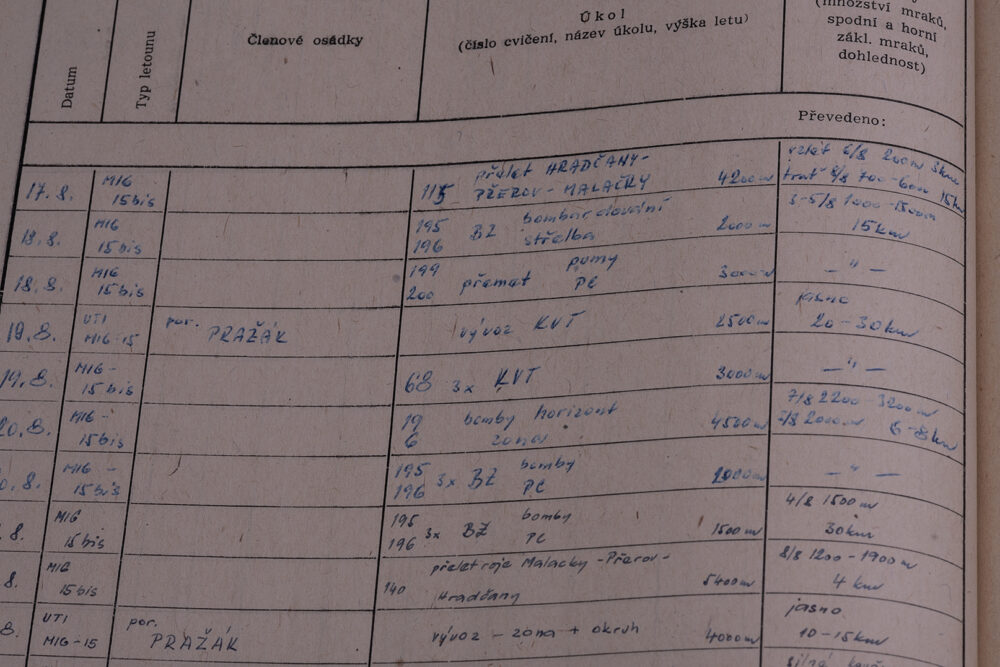 Datum
Typ letounu
Členové osádky
Úkol
(číslo cvičení, název úkolu, výška letu)
(množství mraků,
spodní a horní
zákl. mraků,
dohlednost)
Převedeno:
17.8. MIG 15bis 115 přelet HRADČANY- 4200m vzlét 6/8 200m 3km
PŘEROV-MALAČKY trať 6/8 700-600m 15km
18.8. MIG 15bis 195 BZ bombardování 2000m 3-5/8 1000-1500m
196 střelba 15km
18.8. MIG 15bis 199 přemet pumy 3000m — " —
200 PC
19.8. UTI MIG-15 por. PRAŽÁK vývoz KVT 2500m jasno
20-30km
19.8. MIG-15bis 68 3x KVT 3000m — " —
20.8. MIG-15bis 19 bomby horizont 4500m 7/8 2200-3200m
6 zona 2000m 6-8km
0.8. MIG-15bis 195 3x BZ bomby 2000m — " —
196 PC
8. MIG 15bis 195 3x BZ bomby 1500m 4/8 1500m
196 PC 30km
8. MIG 15bis 140 přelet roje Malacky-Přerov- 5400m 8/8 1200-1900m
Hradčany 4km
8. UTI MIG-15 por. PRAŽÁK vývoz - zona + okruh 4000m jasno
10-15km